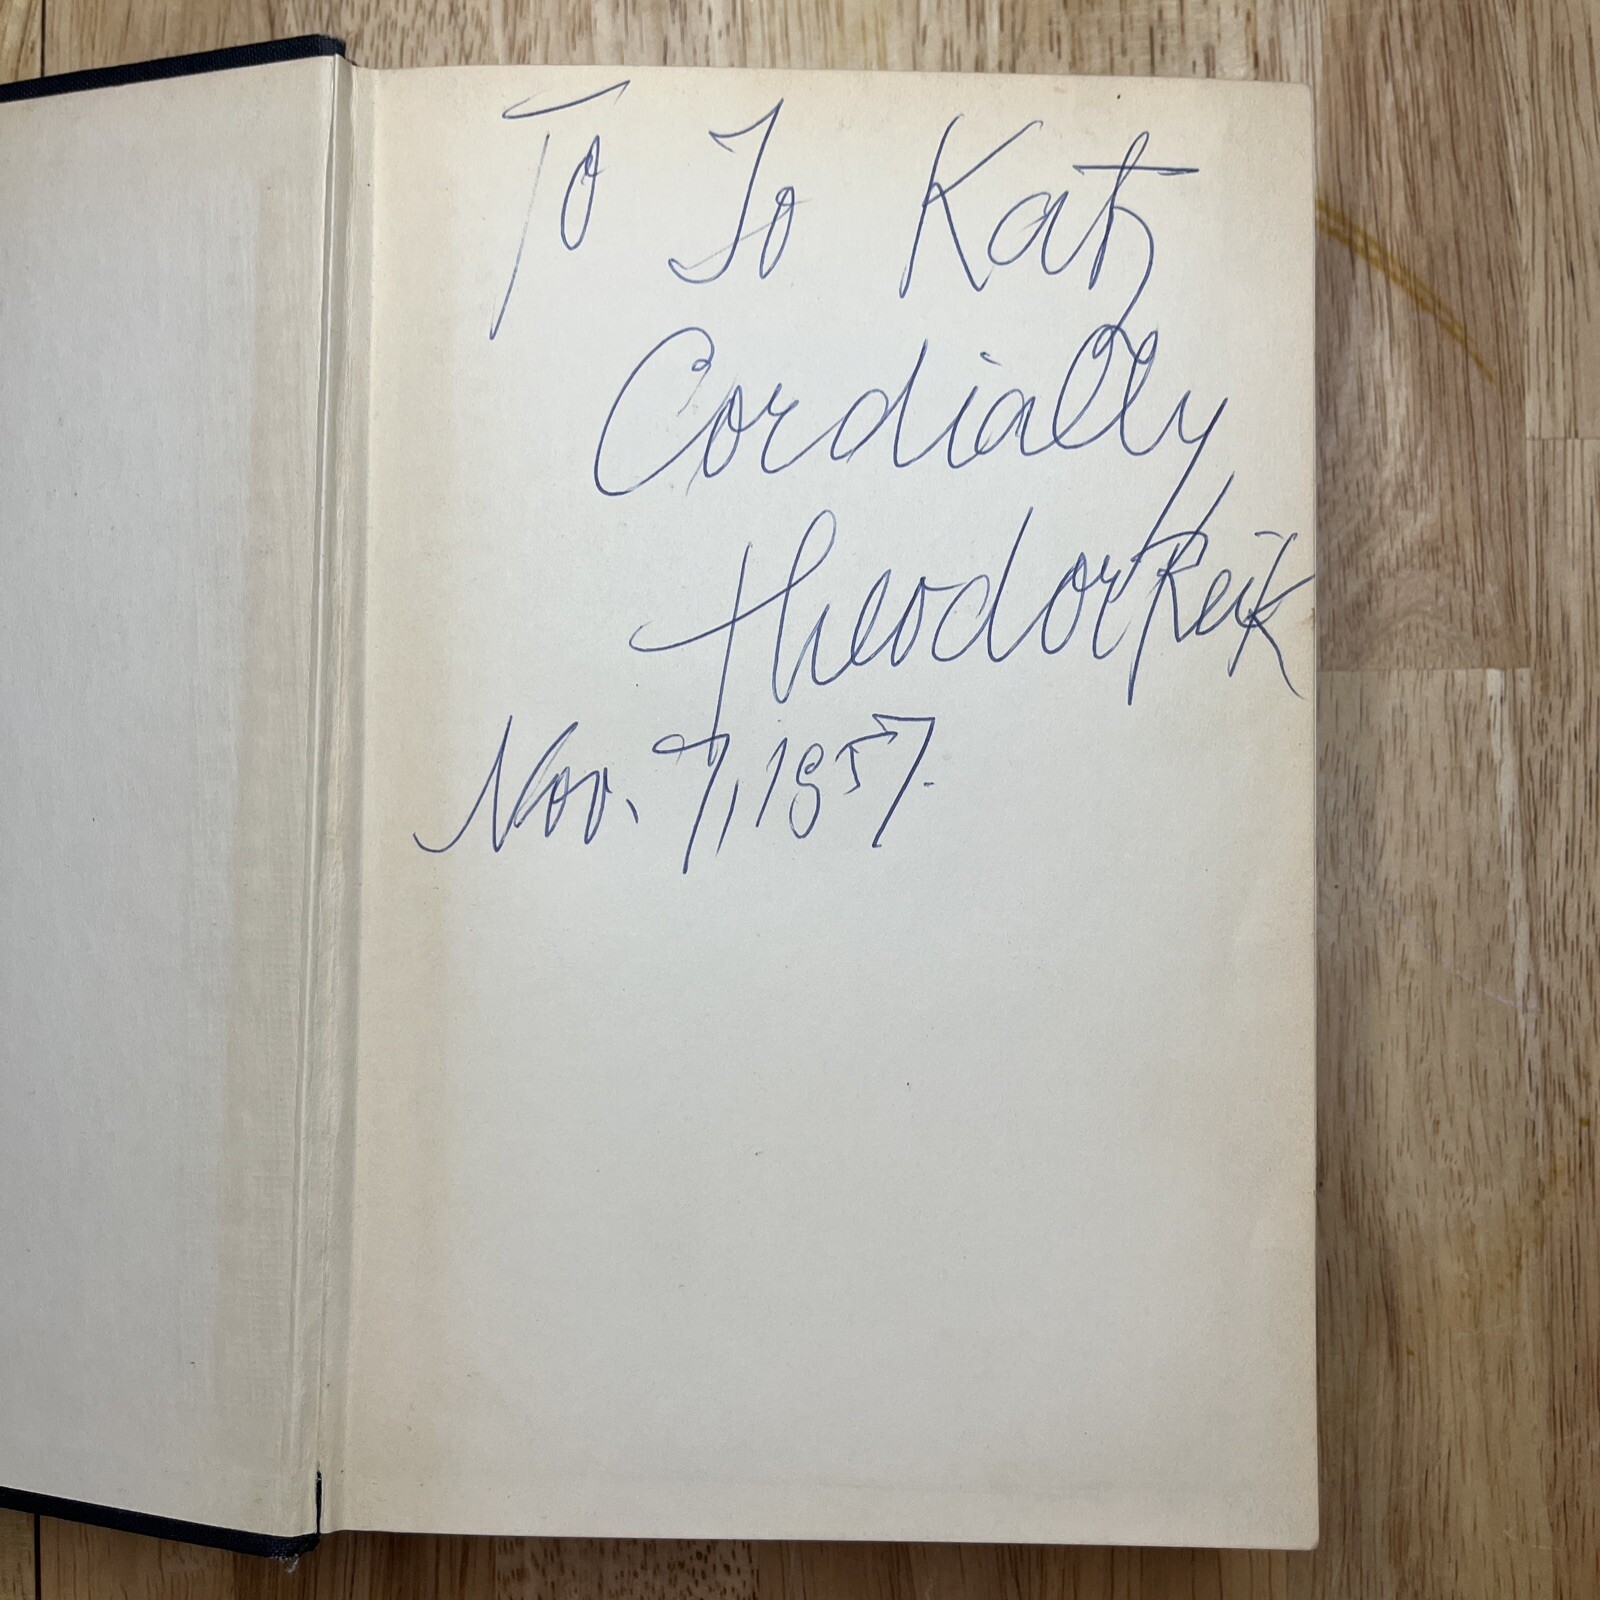 To Jo Katz
Cordially
Theodor Reik
Nov. 7, 1957.